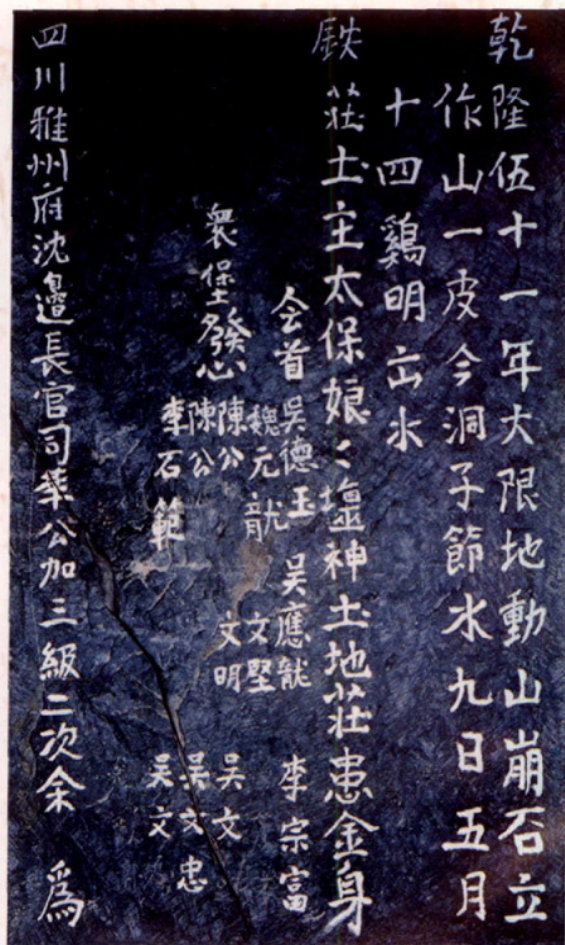 乾隆伍十一年大限地動山崩石立
作山一皮今洞子節水九日五月
十四鷄明出水
鉄莊土主太保娘〻壇神土地莊患金身
会首 吳德玉 吳應龍 李宗富
魏元龍 文堅
衆堡發心 陳公 文明 吳文
陳公 吳文忠
李石範 吳文
四川雅州府沈邊長官司 公加三級二次余 爲